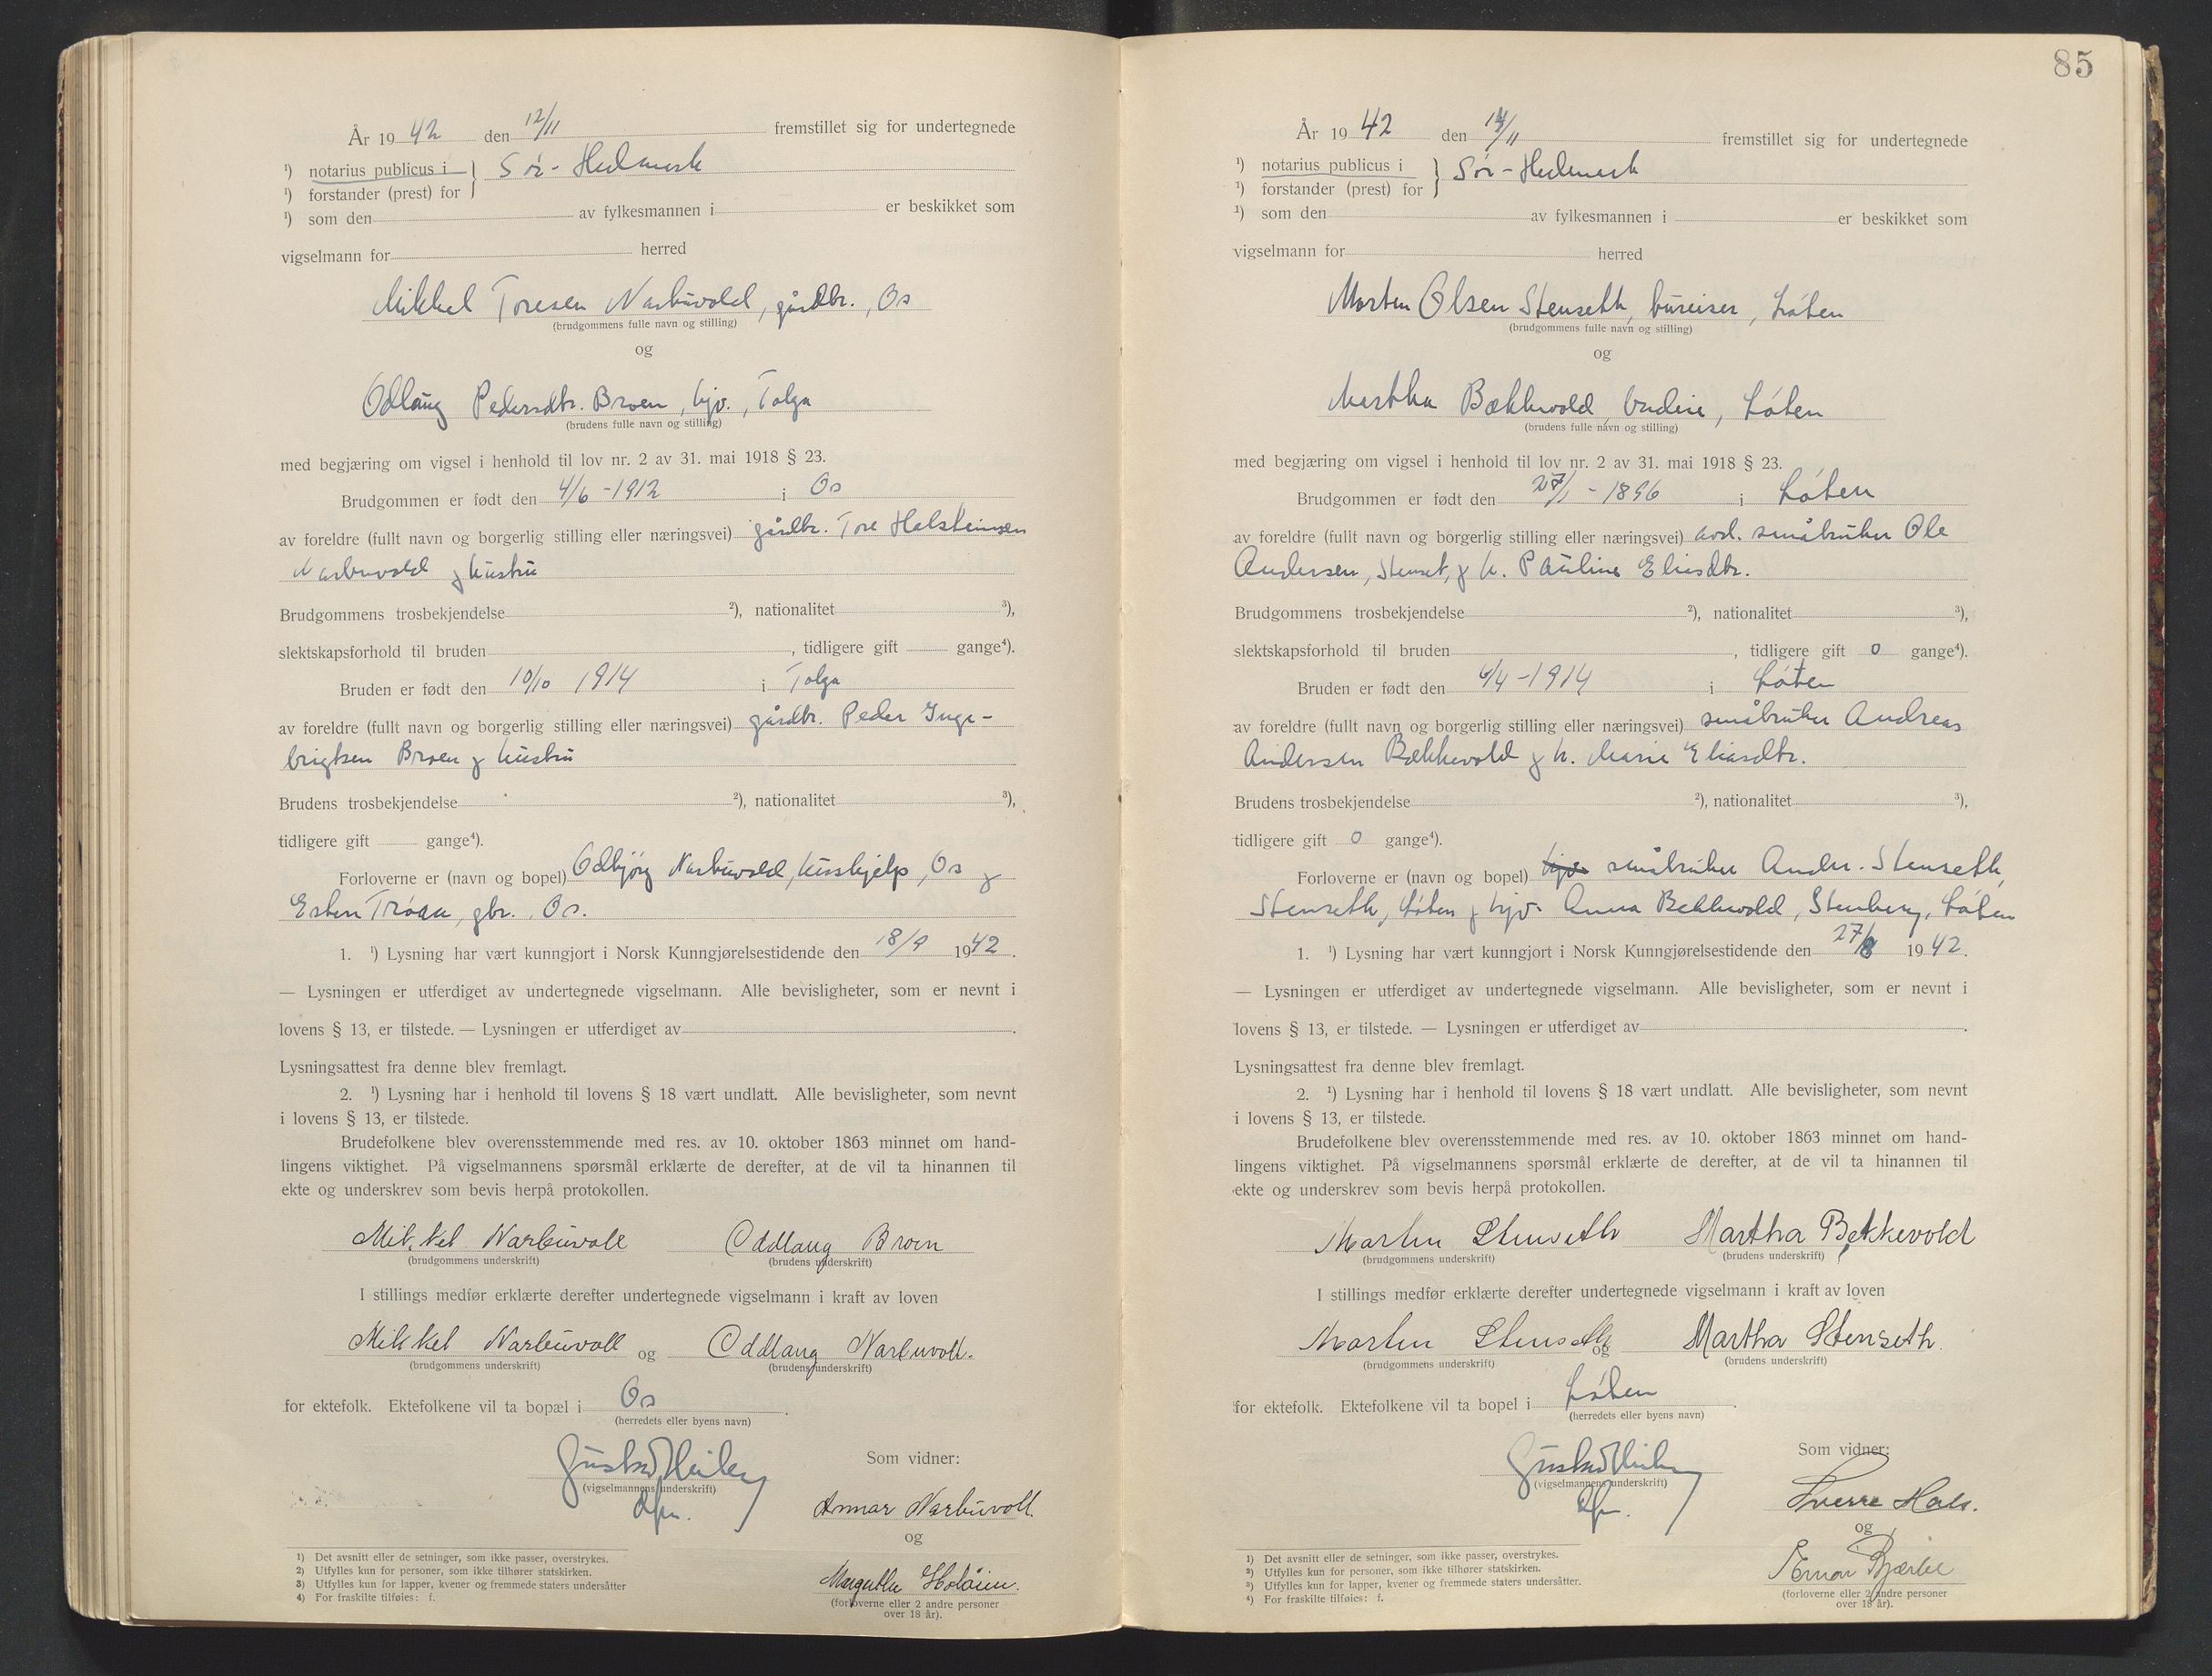 År 19 42 den 12/11 fremstillet sig for undertegnede
¹) notarius publicus i } Sør-Hedmark
¹) forstander (prest) for
¹) som den av fylkesmannen i er beskikket som
vigselmann for herred
Mikkel Toresen Narbuvold, gårdbr., Os
(brudgommens fulle navn og stilling)
og
Odlaug Pedersdtr. Broen, hjv., Tolga
(brudens fulle navn og stilling)
med begjæring om vigsel i henhold til lov nr. 2 av 31. mai 1918 § 23.
Brudgommen er født den 4/6 - 1912 i Os
av foreldre (fullt navn og borgerlig stilling eller næringsvei) gårdbr. Tore Halsteinsen
Narbuvold og hustru
Brudgommens trosbekjendelse ²), nationalitet ³),
slektskapsforhold til bruden , tidligere gift gange⁴).
Bruden er født den 10/10 1914 i Tolga
av foreldre (fullt navn og borgerlig stilling eller næringsvei) gårdbr. Peder Inge-
brigtsen Broen og hustru
Brudens trosbekjendelse ²), nationalitet ³),
tidligere gift gange⁴).
Forloverne er (navn og bopel) Odbjørg Narbuvold, hushjelp, Os og
Esten Trøan, gbr., Os.
1. ¹) Lysning har vært kunngjort i Norsk Kunngjørelsestidende den 18/9 1942.
— Lysningen er utferdiget av undertegnede vigselmann. Alle bevisligheter, som er nevnt i
lovens § 13, er tilstede. — Lysningen er utferdiget av .
Lysningsattest fra denne blev fremlagt.
2. ¹) Lysning har i henhold til lovens § 18 vært undlatt. Alle bevisligheter, som nevnt
i lovens § 13, er tilstede.
Brudefolkene blev overensstemmende med res. av 10. oktober 1863 minnet om hand-
lingens viktighet. På vigselmannens spørsmål erklærte de derefter, at de vil ta hinannen til
ekte og underskrev som bevis herpå protokollen.
Mikkel Narbuvoll Oddlaug Broen
(brudgommens underskrift) (brudens underskrift)
I stillings medfør erklærte derefter undertegnede vigselmann i kraft av loven
Mikkel Narbuvoll og Oddlaug Narbuvoll.
(brudgommens underskrift) (brudens underskrift)
for ektefolk. Ektefolkene vil ta bopæl i Os .
(herredets eller byens navn)
Som vidner:
Gustav Heiberg
(vigselmannens underskrift)
dfm.
Annar Narbuvoll.
og
Margrethe Holøien.
(forloverne eller 2 andre personer
over 18 år).
1) Det avsnitt eller de setninger, som ikke passer, overstrykes.
2) Utfylles kun for personer, som ikke tilhører statskirken.
3) Utfylles kun for lapper, kvener og fremmede staters undersåtter
4) For fraskilte tilføies: f.
85
År 19 42 den 14/11 fremstillet sig for undertegnede
¹) notarius publicus i } Sør-Hedmark
¹) forstander (prest) for
¹) som den av fylkesmannen i er beskikket som
vigselmann for herred
Morten Olsen Stenseth, bureiser, Løten
(brudgommens fulle navn og stilling)
og
Martha Bækkevold, budeie, Løten
(brudens fulle navn og stilling)
med begjæring om vigsel i henhold til lov nr. 2 av 31. mai 1918 § 23.
Brudgommen er født den 27/1 - 1896 i Løten
av foreldre (fullt navn og borgerlig stilling eller næringsvei) avd. småbruker Ole
Andersen, Stenset, og h. Pauline Eliasdtr.
Brudgommens trosbekjendelse ²), nationalitet ³),
slektskapsforhold til bruden , tidligere gift 0 gange⁴).
Bruden er født den 6/4 - 1914 i Løten
av foreldre (fullt navn og borgerlig stilling eller næringsvei) småbruker Andreas
Andersen Bækkevold og h. Marie Eliasdtr.
Brudens trosbekjendelse ²), nationalitet ³),
tidligere gift 0 gange⁴).
Forloverne er (navn og bopel) hjv. småbruker Ander. Stenseth,
Stenseth, Løten og hjv. Anna Bekkevold, Stenberg, Løten
1. ¹) Lysning har vært kunngjort i Norsk Kunngjørelsestidende den 27/8 1942.
— Lysningen er utferdiget av undertegnede vigselmann. Alle bevisligheter, som er nevnt i
lovens § 13, er tilstede. — Lysningen er utferdiget av .
Lysningsattest fra denne blev fremlagt.
2. ¹) Lysning har i henhold til lovens § 18 vært undlatt. Alle bevisligheter, som nevnt
i lovens § 13, er tilstede.
Brudefolkene blev overensstemmende med res. av 10. oktober 1863 minnet om hand-
lingens viktighet. På vigselmannens spørsmål erklærte de derefter, at de vil ta hinannen til
ekte og underskrev som bevis herpå protokollen.
Morten Stenseth Martha Bekkevold
(brudgommens underskrift) (brudens underskrift)
I stillings medfør erklærte derefter undertegnede vigselmann i kraft av loven
Morten Stenseth og Martha Stenseth.
(brudgommens underskrift) (brudens underskrift)
for ektefolk. Ektefolkene vil ta bopel i Løten .
(herredets eller byens navn)
Som vidner:
Gustav Heiberg
(vigselmannens underskrift)
dfm.
Sverre Hals.
og
Bjærke
(forloverne eller 2 andre personer
over 18 år).
1) Det avsnitt eller de setninger, som ikke passer, overstrykes.
2) Utfylles kun for personer, som ikke tilhører statskirken.
3) Utfylles kun for lapper, kvener og fremmede staters undersåtter.
4) For fraskilte tilføies: f.